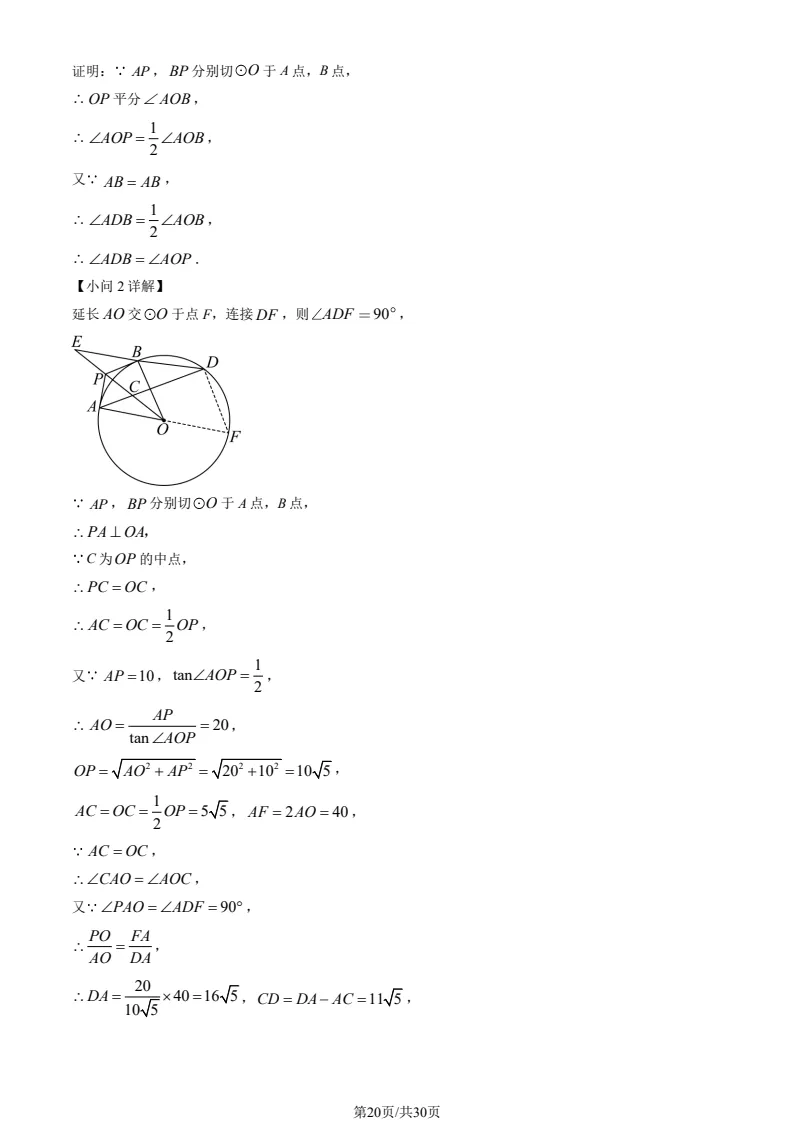 证明：∵ AP，BP分别切⊙O于A点，B点，
∴OP平分∠AOB，
∴∠AOP=1/2∠AOB，
又∵ AB=AB，
∴∠ADB=1/2∠AOB，
∴∠ADB=∠AOP．
【小问2详解】
延长AO交⊙O于点F，连接DF，则∠ADF=90°，
E
B
D
P
C
A
O
F
∵ AP，BP分别切⊙O于A点，B点，
∴PA⊥OA，
∵C为OP的中点，
∴PC=OC，
∴AC=OC=1/2OP，
又∵ AP=10，tan∠AOP=1/2，
∴AO=AP/tan∠AOP=20，
OP=√(AO²+AP²)=√(20²+10²)=10√5，
AC=OC=1/2OP=5√5，AF=2AO=40，
∵ AC=OC，
∴∠CAO=∠AOC，
又∵∠PAO=∠ADF=90°，
∴PO/AO=FA/DA，
∴DA=20/(10√5)×40=16√5，CD=DA−AC=11√5，
第20页/共30页